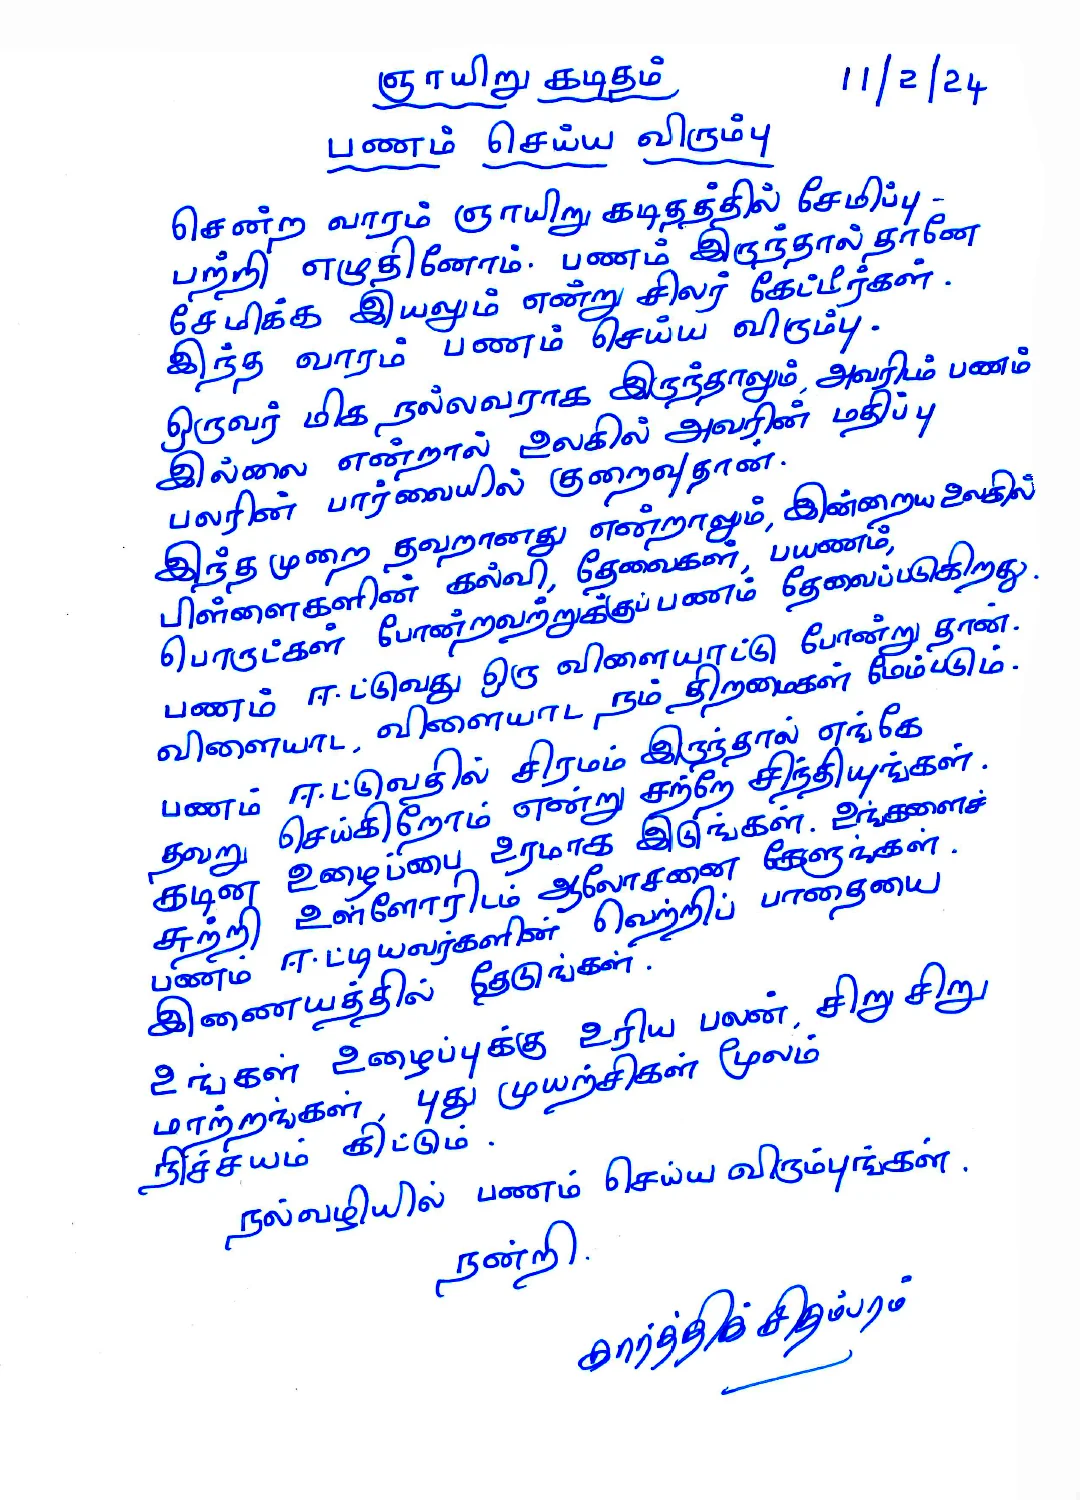 ஞாயிறு கடிதம் 11/2/24
பணம் செய்ய விரும்பு
சென்ற வாரம் ஞாயிறு கடிதத்தில் சேமிப்பு -
பற்றி எழுதினோம். பணம் இருந்தால் தானே
சேமிக்க இயலும் என்று சிலர் கேட்டீர்கள்.
இந்த வாரம் பணம் செய்ய விரும்பு.
ஒருவர் மிக நல்லவராக இருந்தாலும், அவரிடம் பணம்
இல்லை என்றால் உலகில் அவரின் மதிப்பு
பலரின் பார்வையில் குறைவுதான்.
இந்த முறை தவறானது என்றாலும், இன்றைய உலகில்
பிள்ளைகளின் கல்வி, தேவைகள், பயணம்,
பொருட்கள் போன்றவற்றுக்குப் பணம் தேவைப்படுகிறது.
பணம் ஈட்டுவது ஒரு விளையாட்டு போன்று தான்.
விளையாட, விளையாட நம் திறமைகள் மேம்படும்.
பணம் ஈட்டுவதில் சிரமம் இருந்தால் எங்கே
தவறு செய்கிறோம் என்று சற்றே சிந்தியுங்கள்.
கடின உழைப்பை உரமாக இடுங்கள். உங்களைச்
சுற்றி உள்ளோரிடம் ஆலோசனை கேளுங்கள்.
பணம் ஈட்டியவர்களின் வெற்றிப் பாதையை
இணையத்தில் தேடுங்கள்.
உங்கள் உழைப்புக்கு உரிய பலன், சிறு சிறு
மாற்றங்கள், புது முயற்சிகள் மூலம்
நிச்சயம் கிட்டும்.
நல்வழியில் பணம் செய்ய விரும்புங்கள்.
நன்றி.
கார்த்திக் சிதம்பரம்